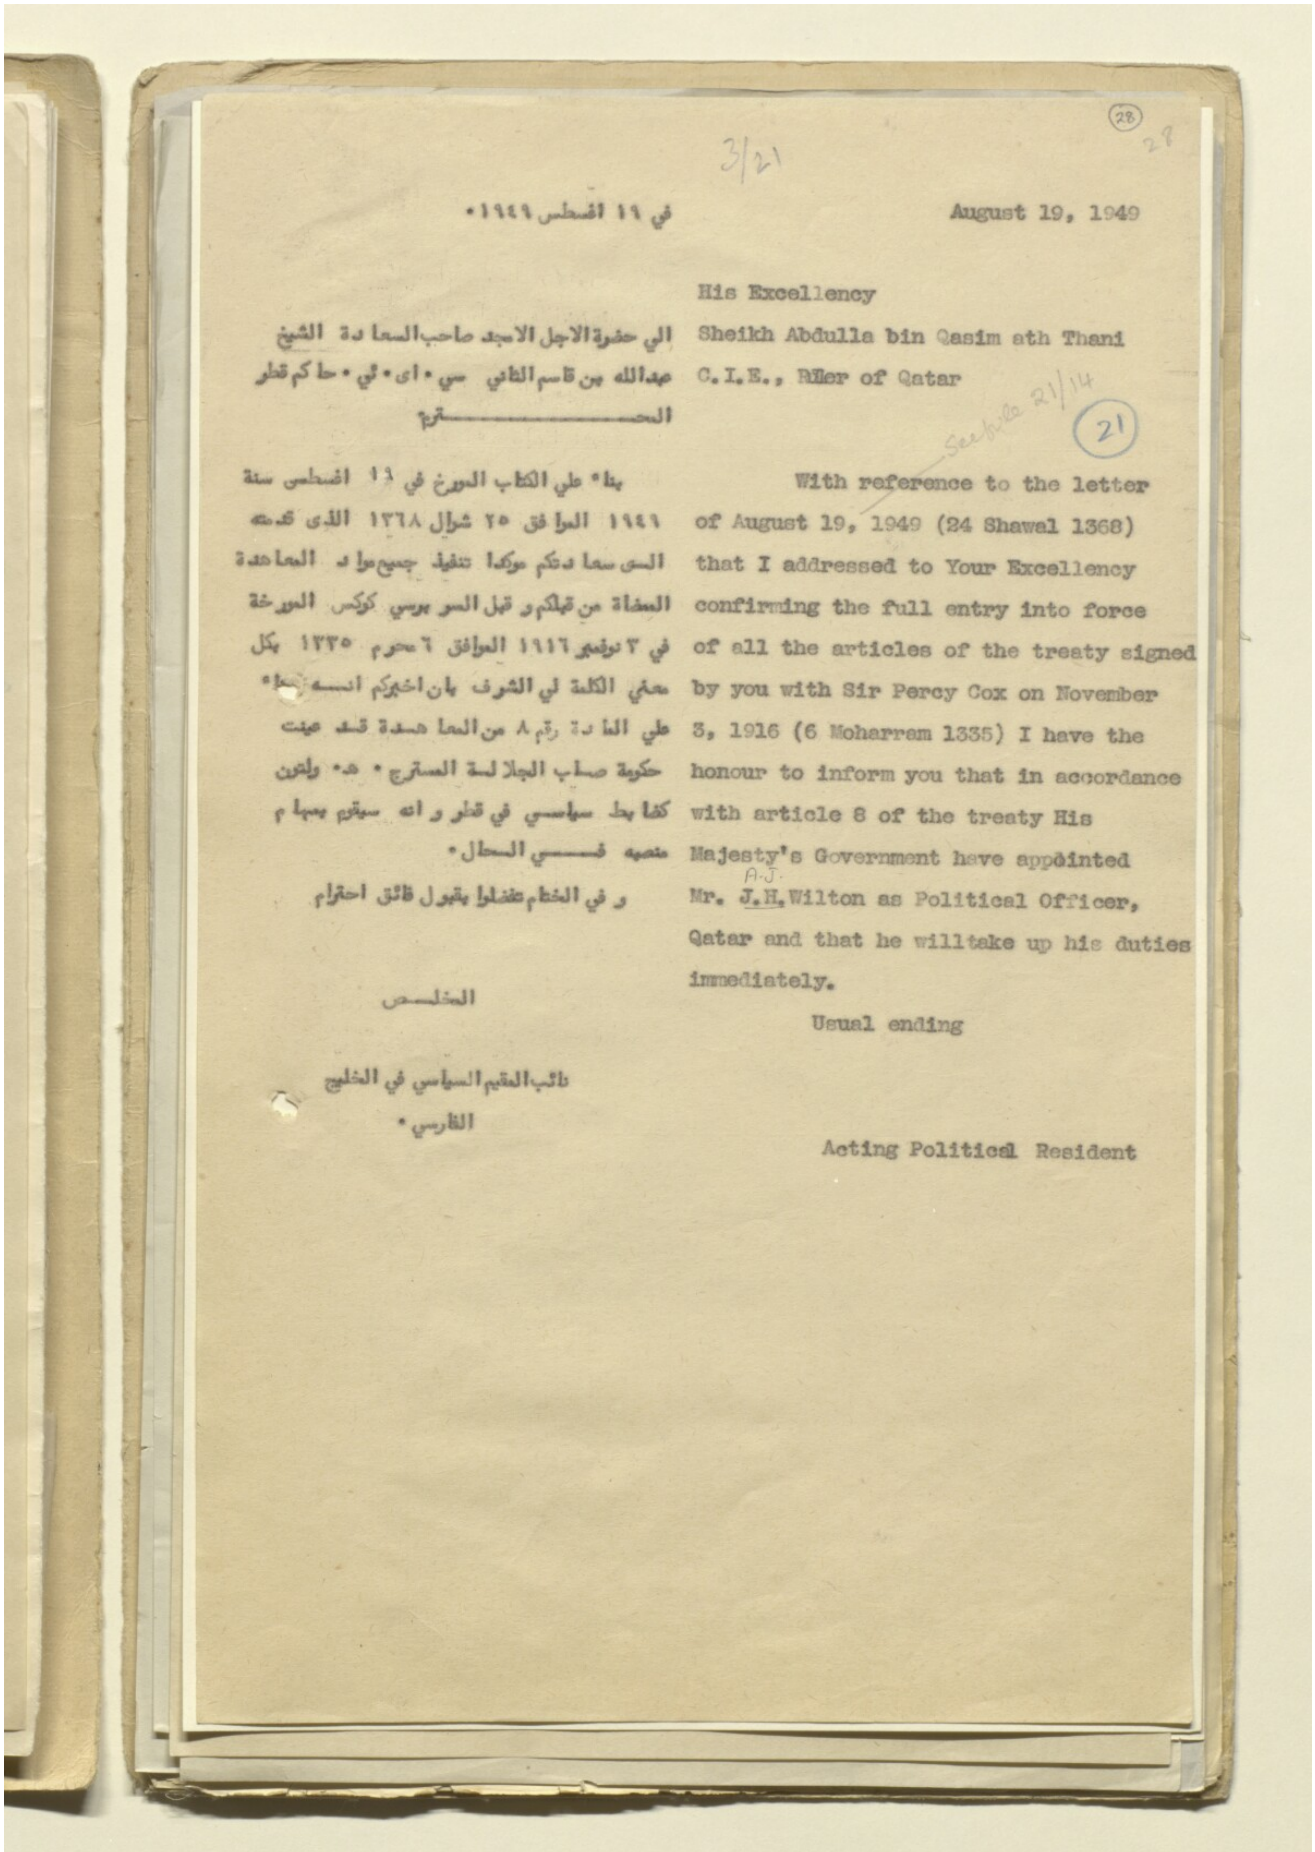 28
28
3/21
August 19, 1949
His Excellency
Sheikh Abdulla bin Qasim ath Thani
C.I.E., Ruler of Qatar
See file 21/14
21
With reference to the letter
of August 19, 1949 (24 Shawal 1368)
that I addressed to Your Excellency
confirming the full entry into force
of all the articles of the treaty signed
by you with Sir Percy Cox on November
3, 1916 (6 Moharram 1335) I have the
honour to inform you that in accordance
with article 8 of the treaty His
Majesty's Government have appointed
A.J.
Mr. J.H.Wilton as Political Officer,
Qatar and that he willtake up his duties
immediately.
Usual ending
Acting Political Resident
في ١٩ اغسطس ١٩٤٩٠
الي حضرة الاجل الامجد صاحب السعادة الشيخ
عبدالله بن قاسم الثاني سي٠اى٠ئي٠حاكم قطر
المحـــــــــــــترم
بناء علي الكتاب المورخ في ١٩ اغسطس سنة
١٩٤٩ الموافق ٢٥ شوال ١٣٦٨ الذى قدمته
السى سعادتكم موكدا تنفيذ جميع مواد المعاهدة
الممضاة من قبلكم و قبل السر برسي كوكس المورخة
في ٣ نوفمبر ١٩١٦ الموافق ٦ محرم ١٣٣٥ بكل
معني الكلمة لي الشرف بان اخبركم انسه
علي المادة رقم ٨ من المعاهسدة قسد عينت
حكومة صاب الجلالسة المسترج٠ هـ٠ ولتون
كضابط سياسي في قطر و انه سيقوم بمهام
منصبه فــــي الحال٠
و في الختام تفضلوا بقبول فائق احترام
المخلــص
نائب المقيم السياسي في الخليج
الفارسي٠